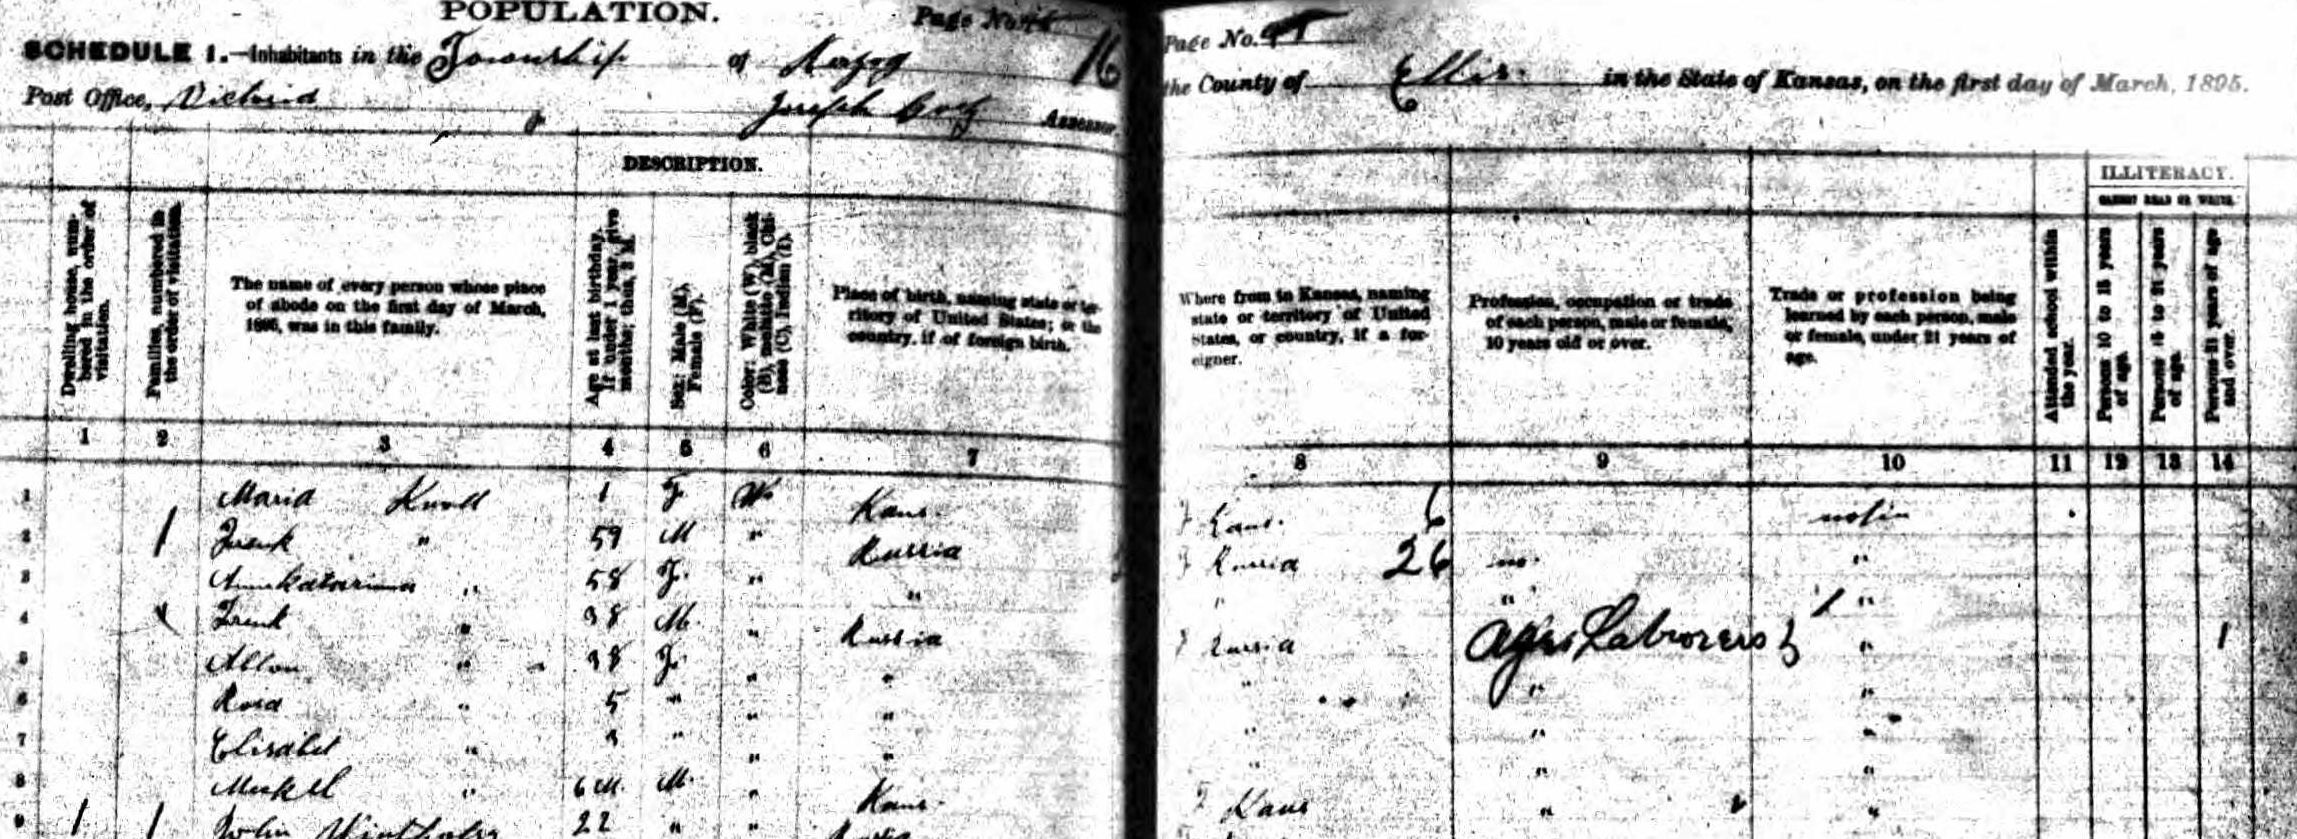 POPULATION.
Page No.
SCHEDULE 1.—Inhabitants in the Township of Herzog 16
Post Office, Victoria Joseph Assessor.
Page No.
the County of Ellis in the State of Kansas, on the first day of March, 1895.
DESCRIPTION.
ILLITERACY.
CANNOT READ OR WRITE.
Dwelling house, numbered in the order of visitation.
Families, numbered in the order of visitation.
The name of every person whose place
of abode on the first day of March,
1895, was in this family.
Age at last birthday. If under 1 year, give months; thus, 3 M.
Sex: Male (M), Female (F).
Color: White (W), black (B), mulatto (M), Chinese (C), Indian (I).
Place of birth, naming state or ter-
ritory of United States; or the
country, if of foreign birth.
Where from to Kansas, naming
state or territory of United
States, or country, if a for-
eigner.
Profession, occupation or trade
of each person, male or female,
10 years old or over.
Trade or profession being
learned by each person, male
or female, under 21 years of
age.
Attended school within the year.
Persons 10 to 15 years of age.
Persons 15 to 21 years of age.
Persons 21 years of age and over.
1 2 3 4 5 6 7 8 9 10 11 12 13 14
1 Maria Knoll 1 F. W. Kans. Kans. 6
2 1 Frenk " 59 M " Russia Russia 26 no. "
3 Annakatarina " 58 F. " " " " "
4 Frenk " 38 M. " Russia Russia Agri Laborers "
5 " 38 F. " " " " "
6 Rosa " 5 " " " " " "
7 Elisabet " 3 " " " " " "
8 " 6 M. M. " Kans. Kans " "
9 1 1 John 22 " "